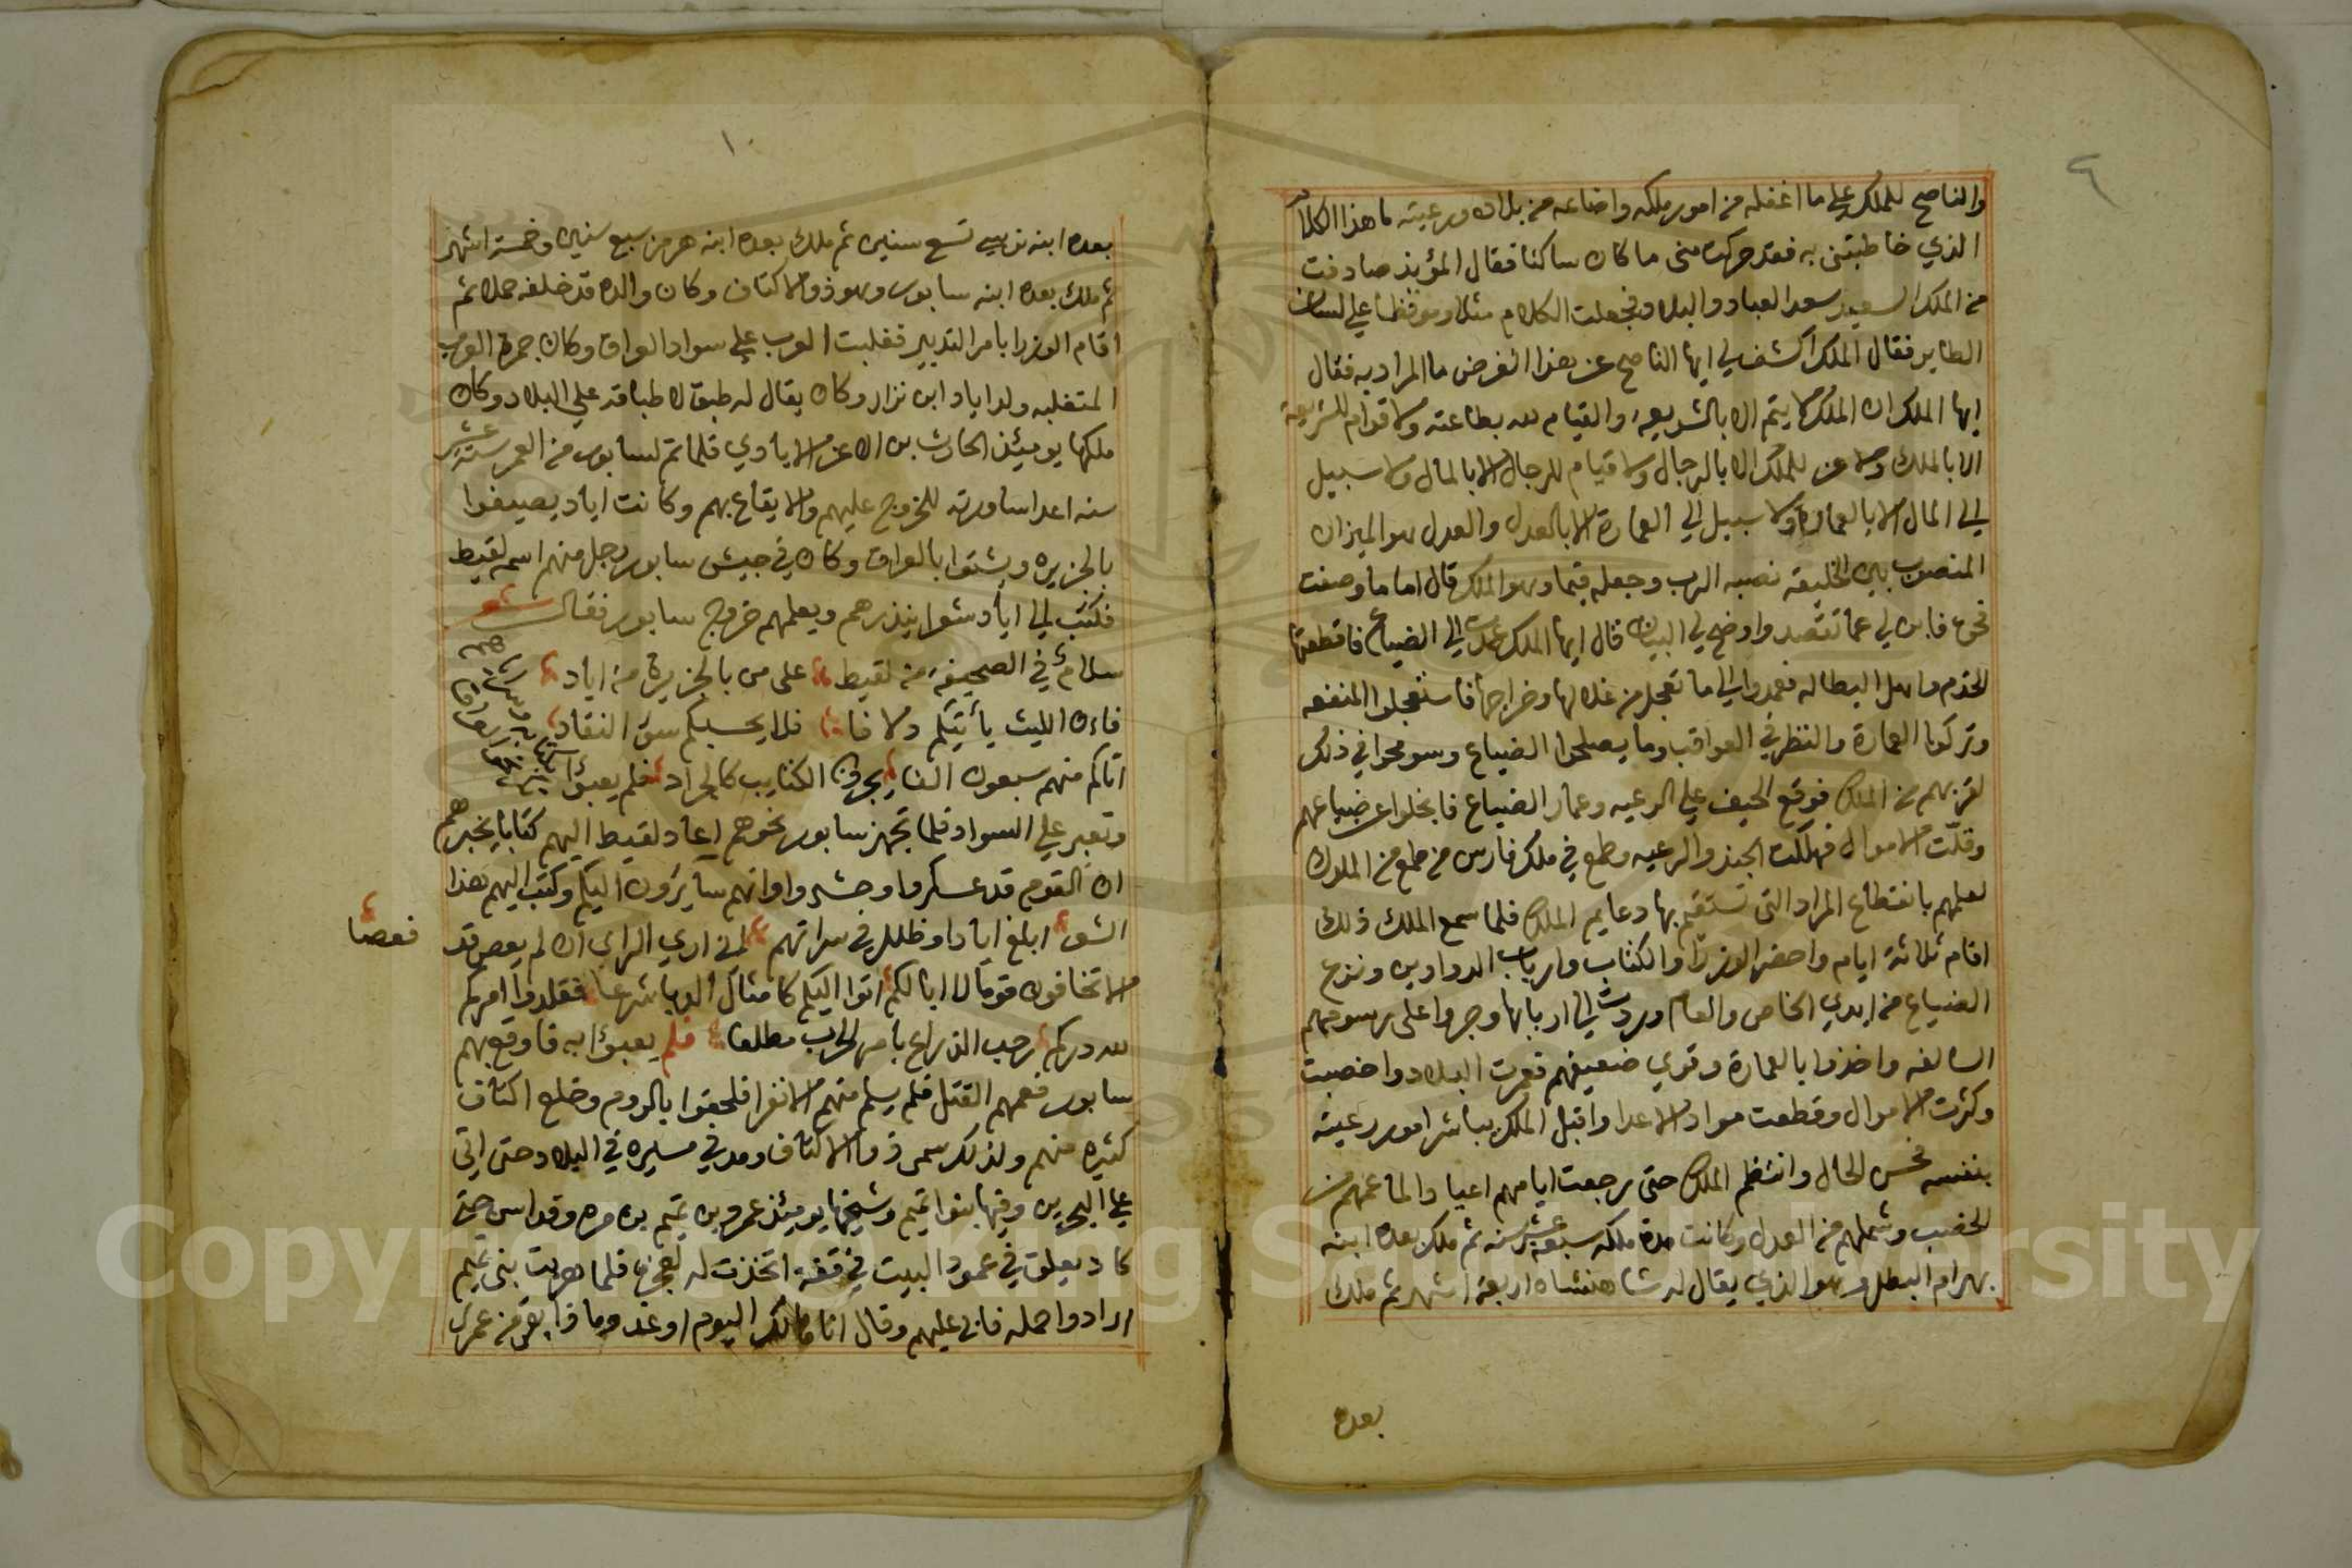 ٩
والناصح للملك على ما اغفله من امور ملكه واضاعه من بلاده ورعيته ما هذا الكلام
الذي خاطبتنى به فقد حركت منى ما كان ساكنا فقال المؤبذ صادفت
من الملك السعيد سعد العباد والبلاد فجعلت الكلام مثلا وموقظا على لسان
الطاير فقال الملك اكشف لي ايها الناصح عن هذا الغرض ما المراد به فقال
ايها الملك ان الملك لا يتم الا بالشريعه والقيام لله بطاعته ولا قوام للشريعة
الا بالملك ولا عز للملك الا بالرجال ولا قيام للرجال الا بالمال ولا سبيل
الى المال الا بالعمارة ولا سبيل الى العمارة الا بالعدل والعدل هو الميزان
المنصوب بين الخليقه نصبه الرب وجعله قيما وهو الملك قال اما ما وصفت
فحق فابن لي عما تقصد واوضح لي البيان قال ايها الملك عمدت الى الضياع فاقطعتها
الخدم واهل البطاله فعمدوا الى ما تعجل من غلالها وخراجها فاستعجلوا المنفعه
وتركوا العمارة والنظر في العواقب وما يصلحوا الضياع وسومحوا في ذلك
لقربهم من الملك فوقع الحيف على الرعيه وعمار الضياع فانجلوا عن ضياعهم
وقلّت الاموال فهلكت الجند والرعيه وطمع في ملك فارس من طمع من الملوك
لعلمهم بانقطاع المراد التى تستقيم بها دعايم الملك فلما سمع الملك ذلك
اقام ثلاثة ايام واحضر الوزرا والكتاب وارباب الدواوين ونزع
الضياع من ايدي الخاص والعام وردت الى اربابها وجروا على رسومهم
السالفه واخذوا بالعمارة وقوي ضعيفهم فعمرت البلاد واخصبت
وكثرت الاموال وقطعت مواد الاعدا واقبل الملك يباشر امور رعيته
بنفسه فحسن الحال وانتظم الملك حتى رجعت ايامهم اعيادا لما عمهم من
الخصب وشملهم من العدل وكانت مدة ملكه سبع عشر سنه ثم ملك بعده ابنه
بهرام البطل وهو الذي يقال له شاهنشاه اربعة اشهر ثم ملك
بعده
١٠
بعده ابنه نرسي تسع سنين ثم ملك بعده ابنه هرمز سبع سنين وخمسة اشهر
ثم ملك بعده ابنه سابور وهو ذو الاكتاف وكان والده قد خلفه حملا ثم
اقام الوزرا بامر التدبير فغلبت العرب على سواد العراق وكان جمرة العرب
المتغلبه ولد اياد ابن نزار وكان يقال له طبق لاطباقه على البلاد وكان
ملكها يوميئذ الحارث بن الاغر الايادي فلما تم لسابور من العمر ستة عشر
سنه اعد اساورته للخروج عليهم والايقاع بهم وكانت اياد يصيفوا
بالجزيره ويشتوا بالعراق وكان في جيش سابور رجل منهم اسمه لقيط
فكتب الى اياد شعرا ينذرهم ويعلمهم خروج سابور فقال شعر
سلام في الصحيفة من لقيط على من بالجزيرة من اياد
فان الليث يأتيكم دلافا فلا يحسبكم سوق النقاد
اتاكم منهم سبعون الفا يجرون الكتايب كالجراد فلم يعبؤا
وتعبر على السواد فلما تجهز سابور نحوهم اعاد لقيط اليهم كتابا يخبرهم
ان القوم قد عسكروا وحشدوا وانهم سايرون اليكم وكتب اليهم هذا
الشعر ابلغ ايادا وظلل في سراتهم انى ارى الراى ان لم يعص قد
نصعا
الا تخافون قوما لا ابا لكم اتوا اليكم كامثال الدبا سرعا فقلدوا امركم
لله دركم رحب الذراع بامر الحرب مطلعا فلم يعبؤا به فاوقع بهم
سابور فعمهم القتل فلم يسلم منهم الا نفرا فلحقوا بالروم وخلع اكتاف
كثيره منهم ولذلك سمى ذو الاكتاف ومد في مسيره في البلاد حتى اتى
على البحرين وفيها بنوا تميم وشيخها يوميئذ عمرو بن تميم بن مره وقد اسن حتى
كاد يعلق في عمود البيت في قفة اتخذت له لعجزه فلما هربت بنى تميم
ارادوا حمله فابى عليهم وقال انا هالك اليوم او غد وماذا بقى من عمرى
Copyright © King Saud University